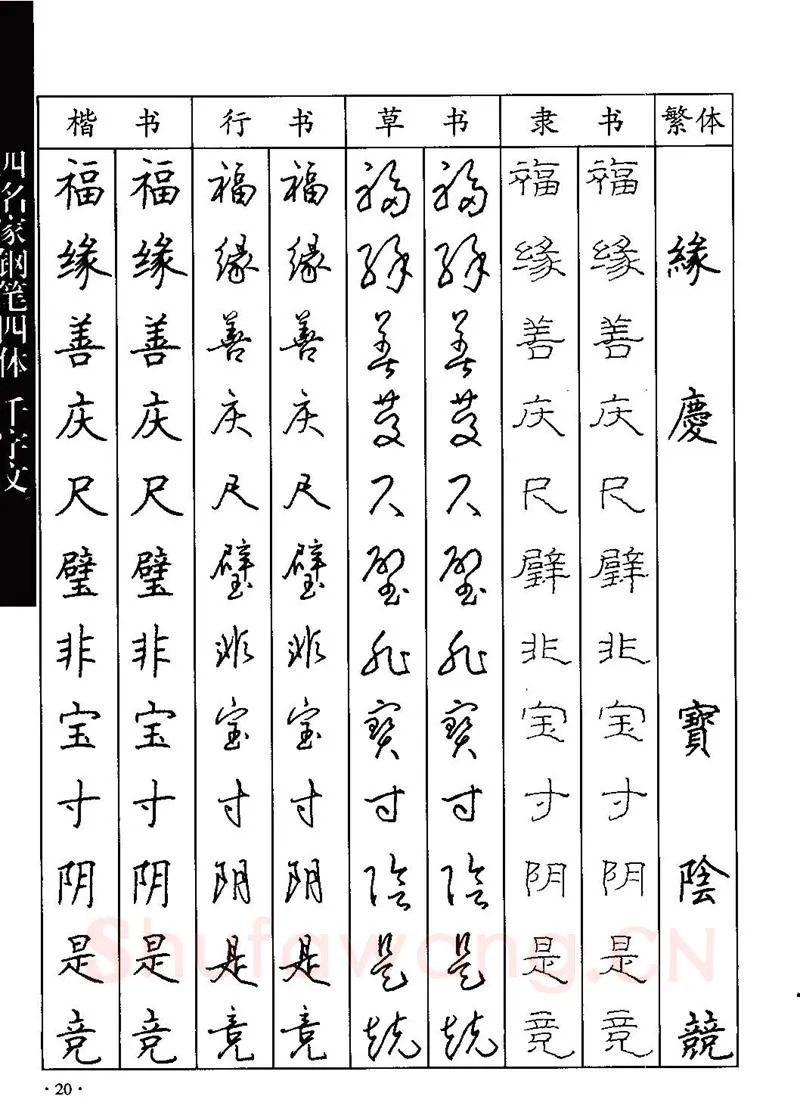 四名家钢笔四体千字文
楷书 行书 草书 隶书 繁体
福 福 福 福 福 福 福 福
缘 缘 缘 缘 缘 缘 缘 缘 緣
善 善 善 善 善 善 善 善
庆 庆 庆 庆 慶 慶 庆 庆 慶
尺 尺 尺 尺 尺 尺 尺 尺
璧 璧 璧 璧 璧 璧 璧 璧
非 非 非 非 非 非 非 非
宝 宝 宝 宝 寶 寶 宝 宝 寶
寸 寸 寸 寸 寸 寸 寸 寸
阴 阴 阴 阴 陰 陰 阴 阴 陰
是 是 是 是 是 是 是 是
竞 竞 竞 竞 競 競 竞 竞 競
Shufawang.CN
·20·